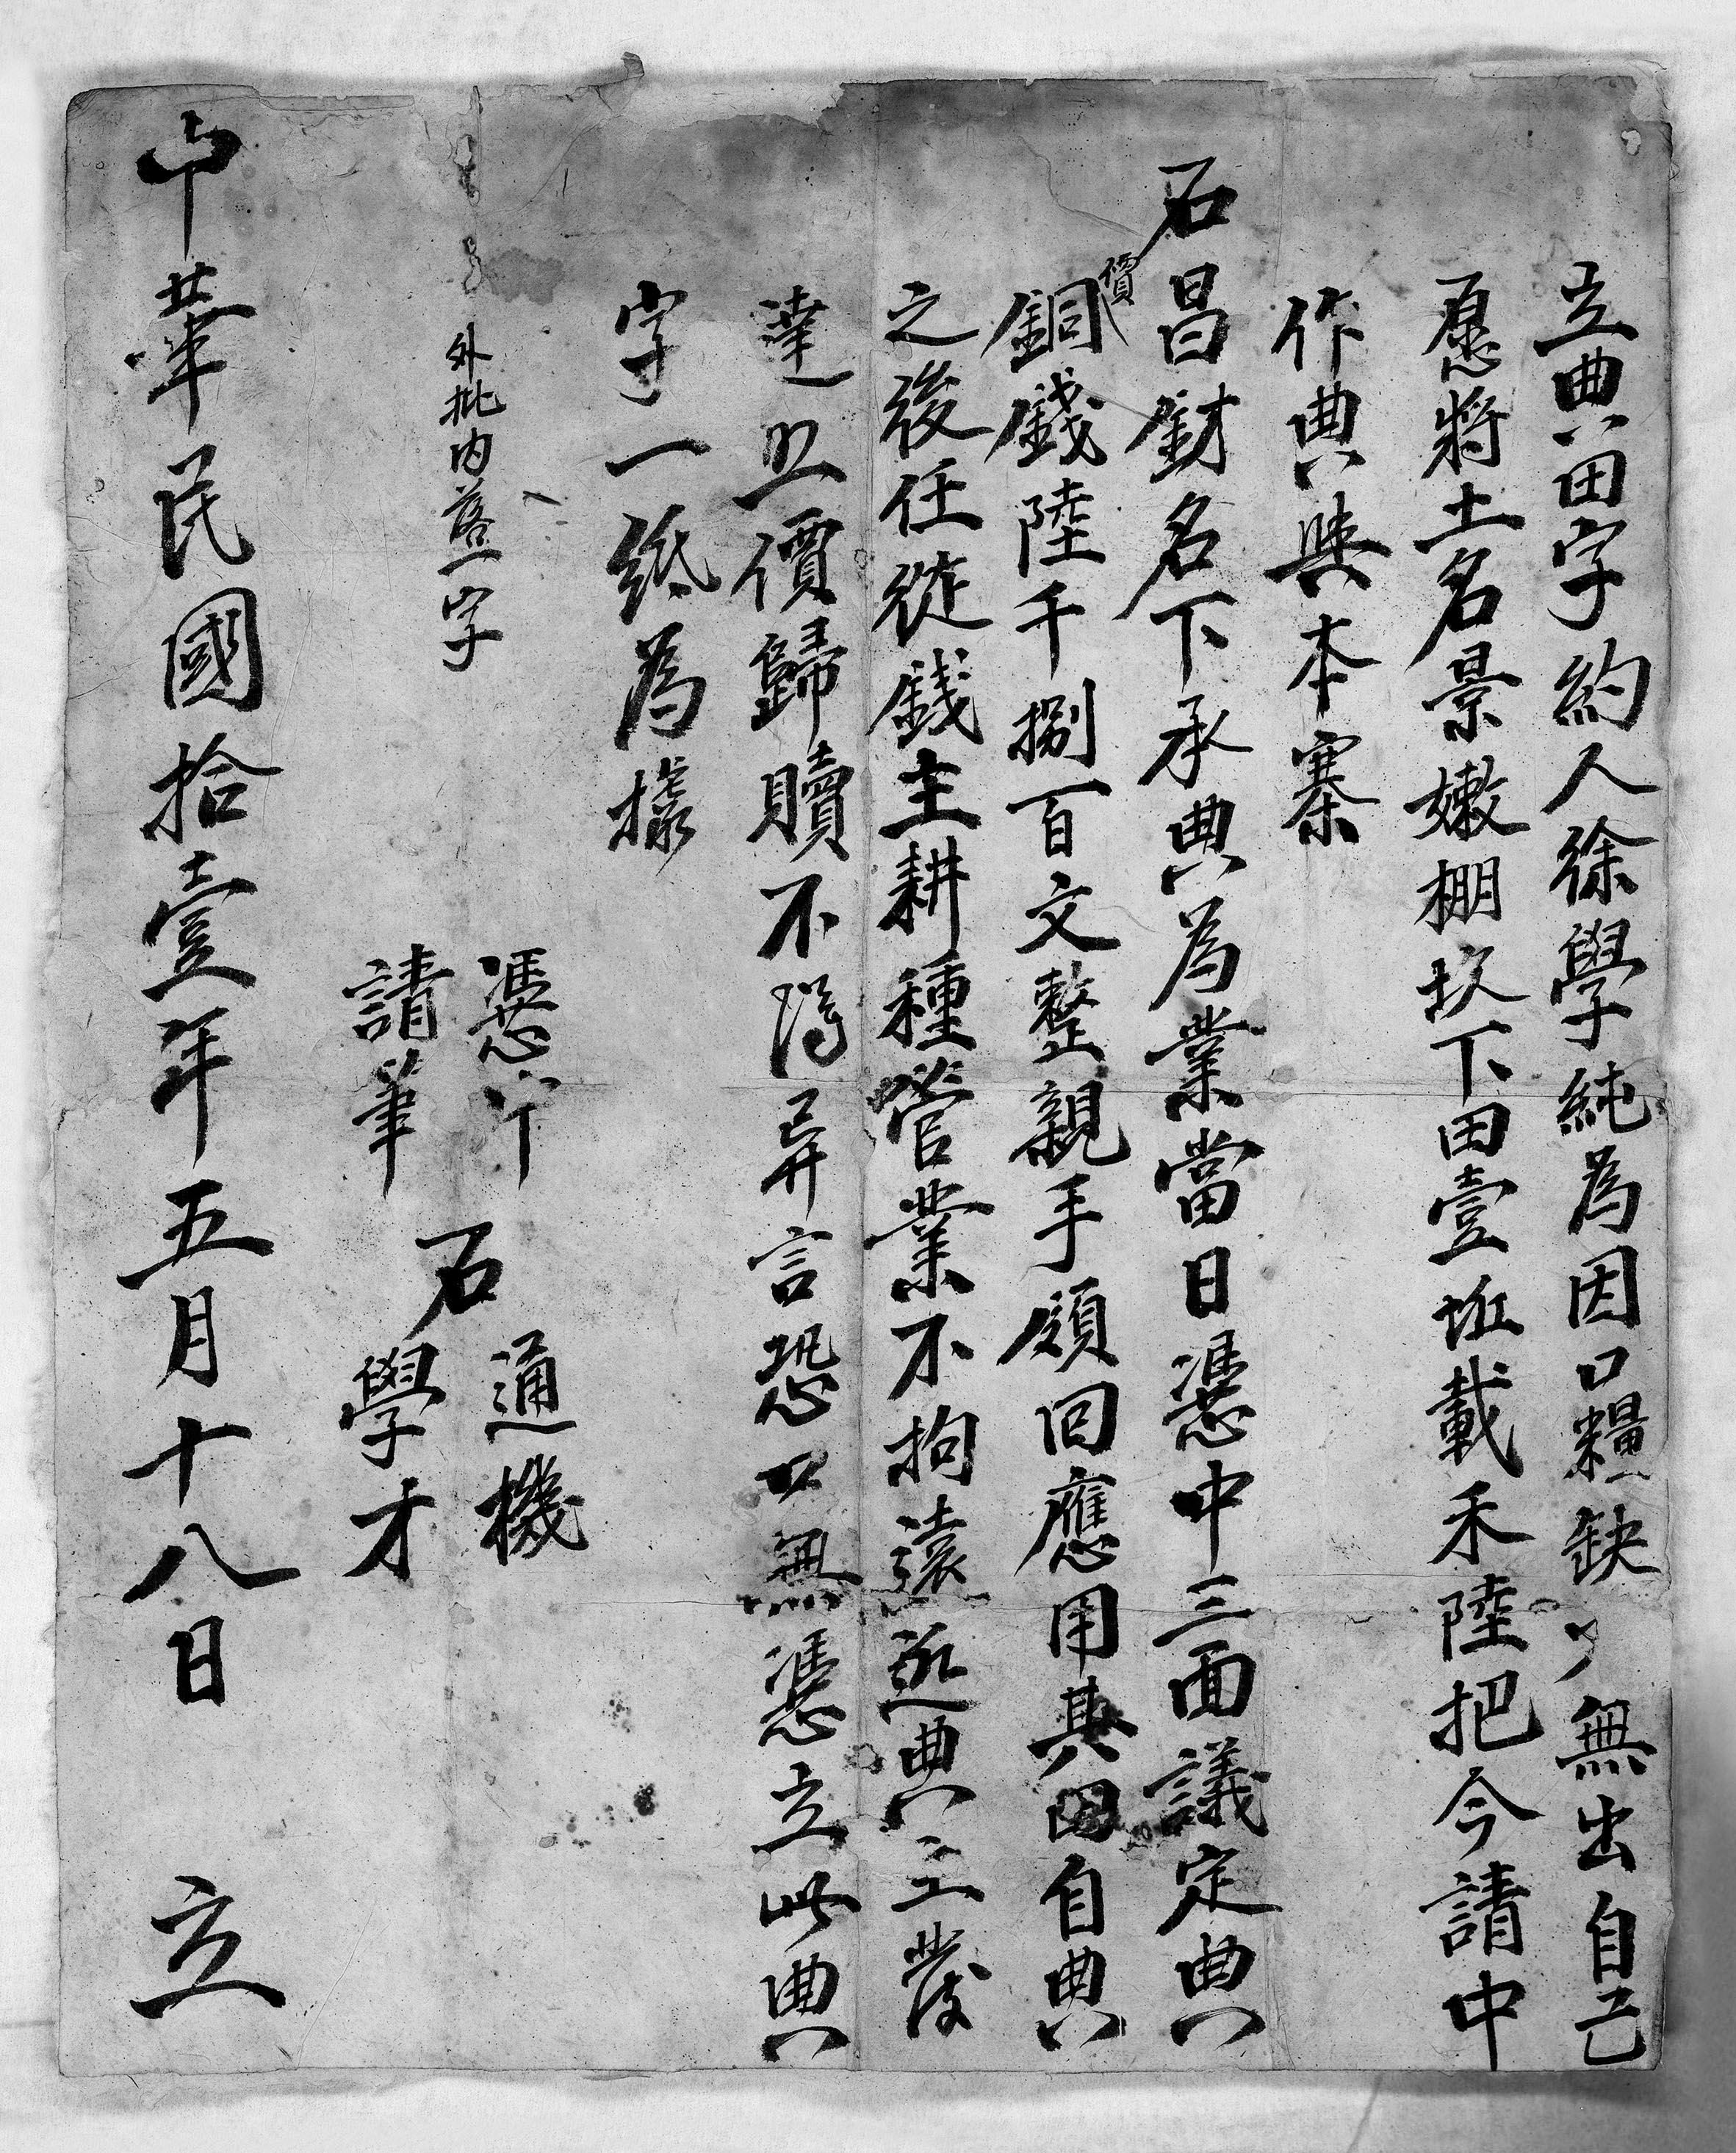 立典田字約人徐學純為因口糧缺少無出自己
愿將土名景嫩棚坎下田壹坵載禾陸把今請中
作典與本寨
石昌財名下承典為業當日憑中三面議定典
價
銅錢陸千捌百文整親手領回應用其田自典
之後任從錢主耕種營業不拘遠近典主發
達照價歸贖不得異言恐口無憑立此典
字一紙為據
外批內落一字
憑中 石通機
請筆 學才
中華民國拾壹年五月十八日 立